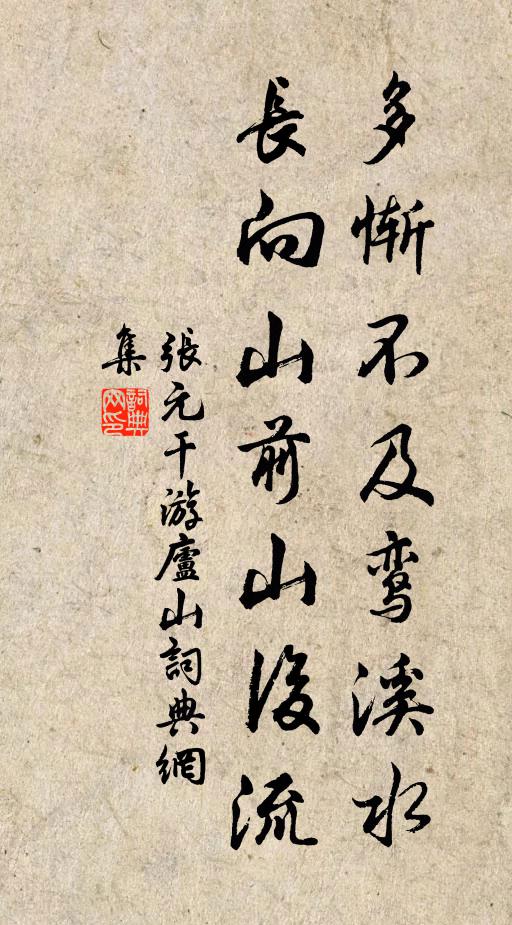 多慚不及鸾溪水
長向山前山後流
張元干游廬山詞典網
集
詞典
网印